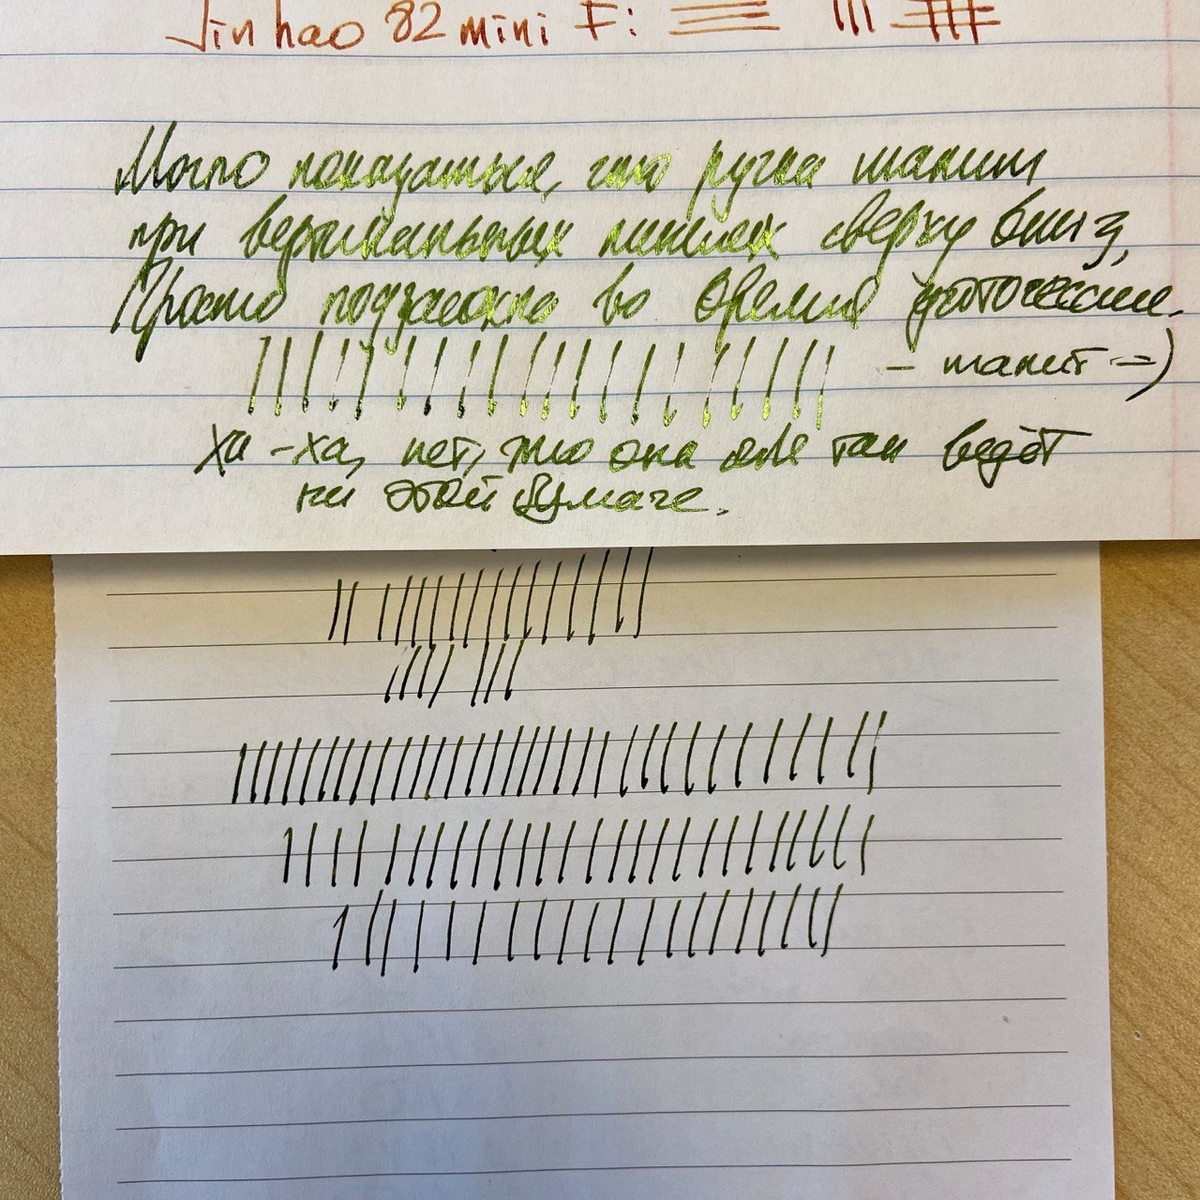 Jinhao 82 mini F:
Могло показаться, что ручка шалит
при вертикальных линиях сверху вниз,
Просто подсохла во время фотосессии.
– шалит =)
Ха-ха, нет, это она себя так ведёт
на этой бумаге.